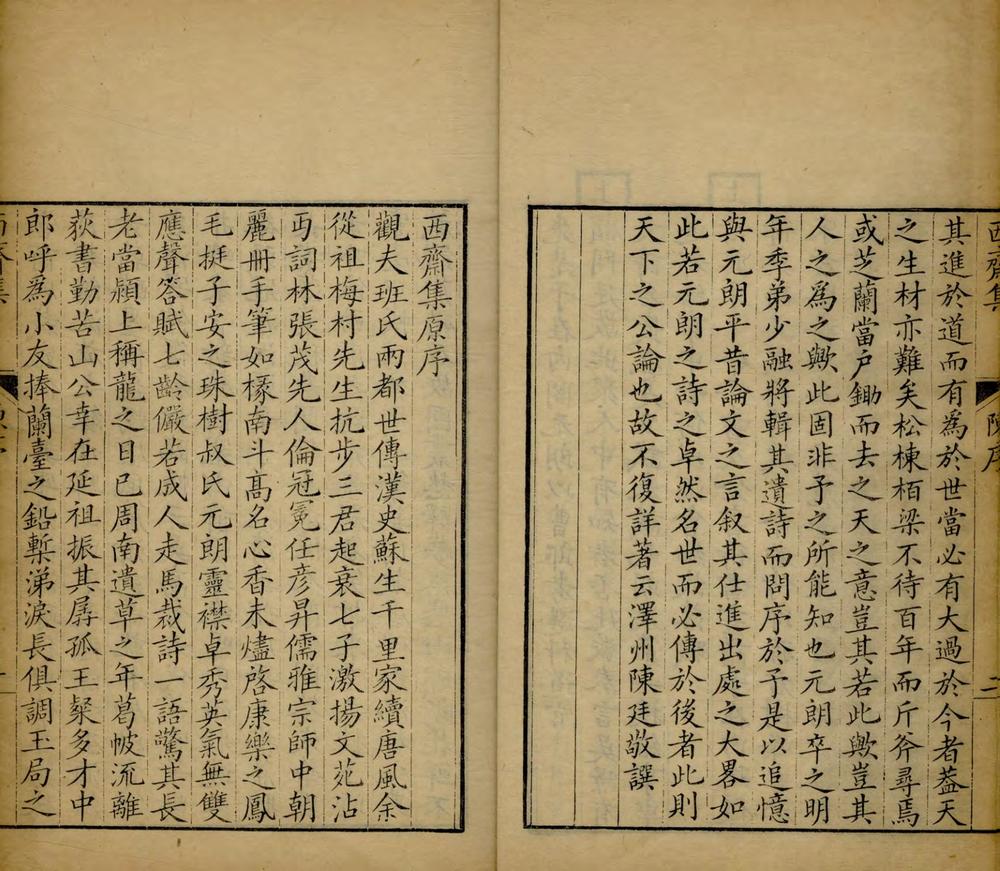 其進於道而有為於世當必有大過於今者葢天
之生材亦難矣松棟栢梁不待百年而斤斧尋焉
或芝蘭當户鋤而去之天之意豈其若此歟豈其
人之為之歟此固非予之所能知也元朗卒之明
年季弟少融將輯其遺詩而問序於予是以追憶
與元朗平昔論文之言叙其仕進出處之大畧如
此若元朗之詩之卓然名世而必傳於後者此則
天下之公論也故不復詳著云澤州陳廷敬譔
西齋集原序
觀夫班氏兩都世傳漢史蘇生千里家續唐風余
從祖梅村先生抗步三君起衰七子激揚文苑沾
丐詞林張茂先人倫冠冕任彦昇儒雅宗師中朝
麗冊手筆如椽南斗高名心香未燼啓康樂之鳳
毛挺子安之珠樹叔氏元朗靈襟卓秀英氣無雙
應聲答賦七齡儼若成人走馬裁詩一語驚其長
老當頴上稱龍之日已周南遺草之年葛帔流離
荻書勤苦山公幸在延祖振其孱孤王粲多才中
郎呼為小友捧蘭臺之鉛槧涕淚長俱調玉局之